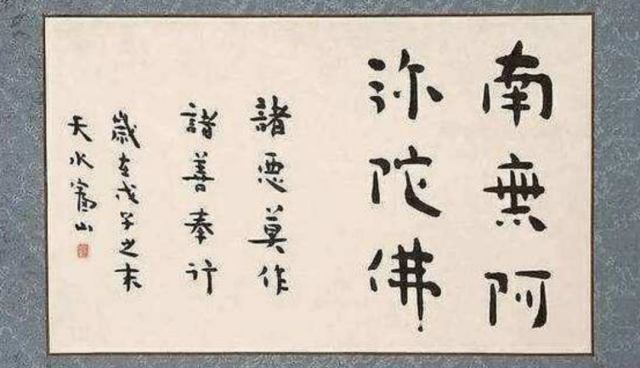 南無阿
弥陀佛
諸恶莫作
諸善奉行
歲在戊子之末
天水嵩山